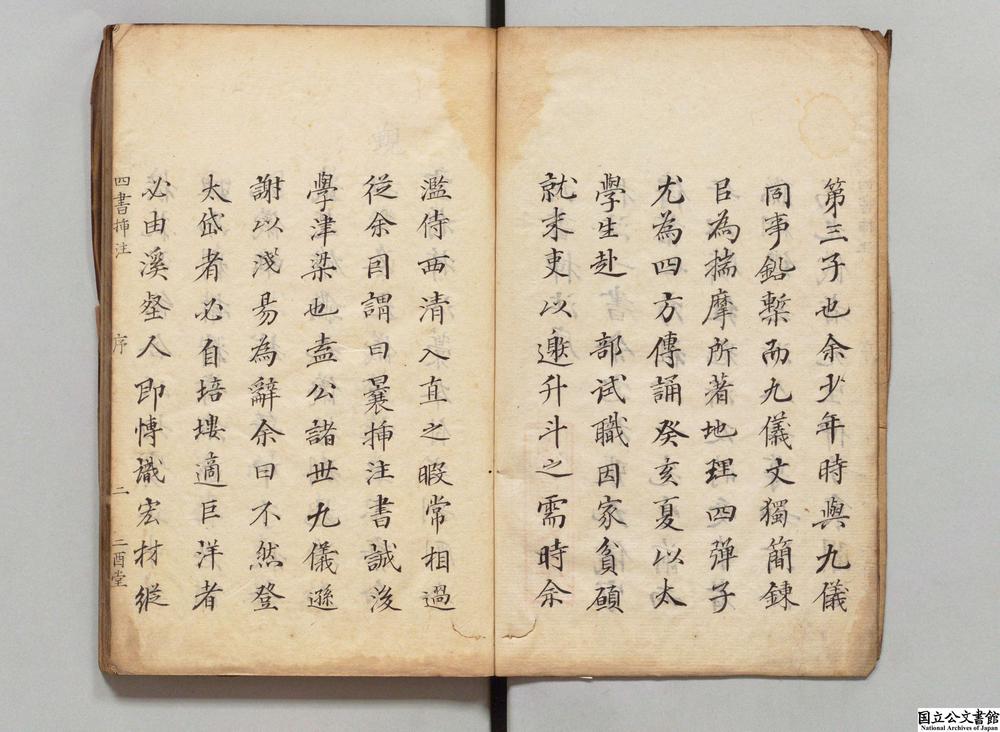 第三子也余少年時與九儀
同事鉛槧而九儀文獨簡鍊
㠯為揣摩所著地理四弹子
尤為四方傳誦癸亥夏以太
學生赴 部試職因家貧願
就末吏以邀升斗之需時余
濫侍西清入直之暇常相過
從余因謂曰曩挿注書誠後
學津梁也盍公諸世九儀遜
謝以淺昜為辭余曰不然登
太岱者必自培塿適巨洋者
必由溪壑人即愽識宏材縱
四書挿注 序 二 二酉堂
国立公文書館
National Archives of Japan